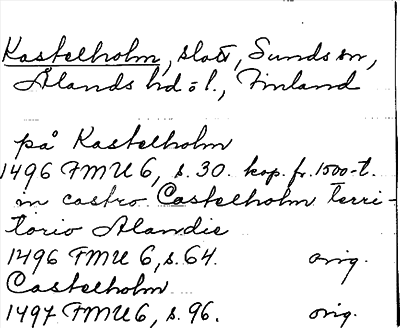 Kastelholm, slott, Sunds sn,
Ålands hd o l., Finland
på Kastelholm
1496 FMU 6, s. 30. kop. fr. 1500-t.
in castro Castelholm terri-
torio Alandie
1496 FMU 6, s. 64. orig.
Castelholm
1497 FMU 6, s. 96. orig.